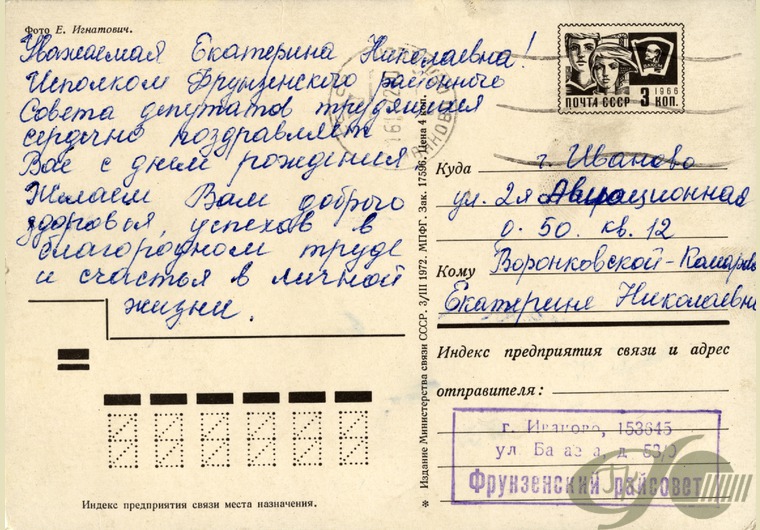 Фото Е. Игнатович.
Уважаемая Екатерина Николаевна!
Исполком Фрунзенского районного
Совета депутатов трудящихся
сердечно поздравляет
Вас с днем рождения
Желаем Вам доброго
здоровья, успехов в
благородном труде
и счастья в личной
жизни.
ПОЧТА СССР 3 КОП.
1966
Куда г. Иваново
ул. 2я Авиационная
д. 50. кв. 12
Кому Воронковской-Комаров
Екатерине Николаевне
Индекс предприятия связи и адрес
отправителя:
г. Иваново, 153645
ул. д.
Фрунзенский райсовет
Издание Министерства связи СССР. 3/III 1972. МПФГ. Зак. 17596. Цена 4 коп.
Индекс предприятия связи места назначения.